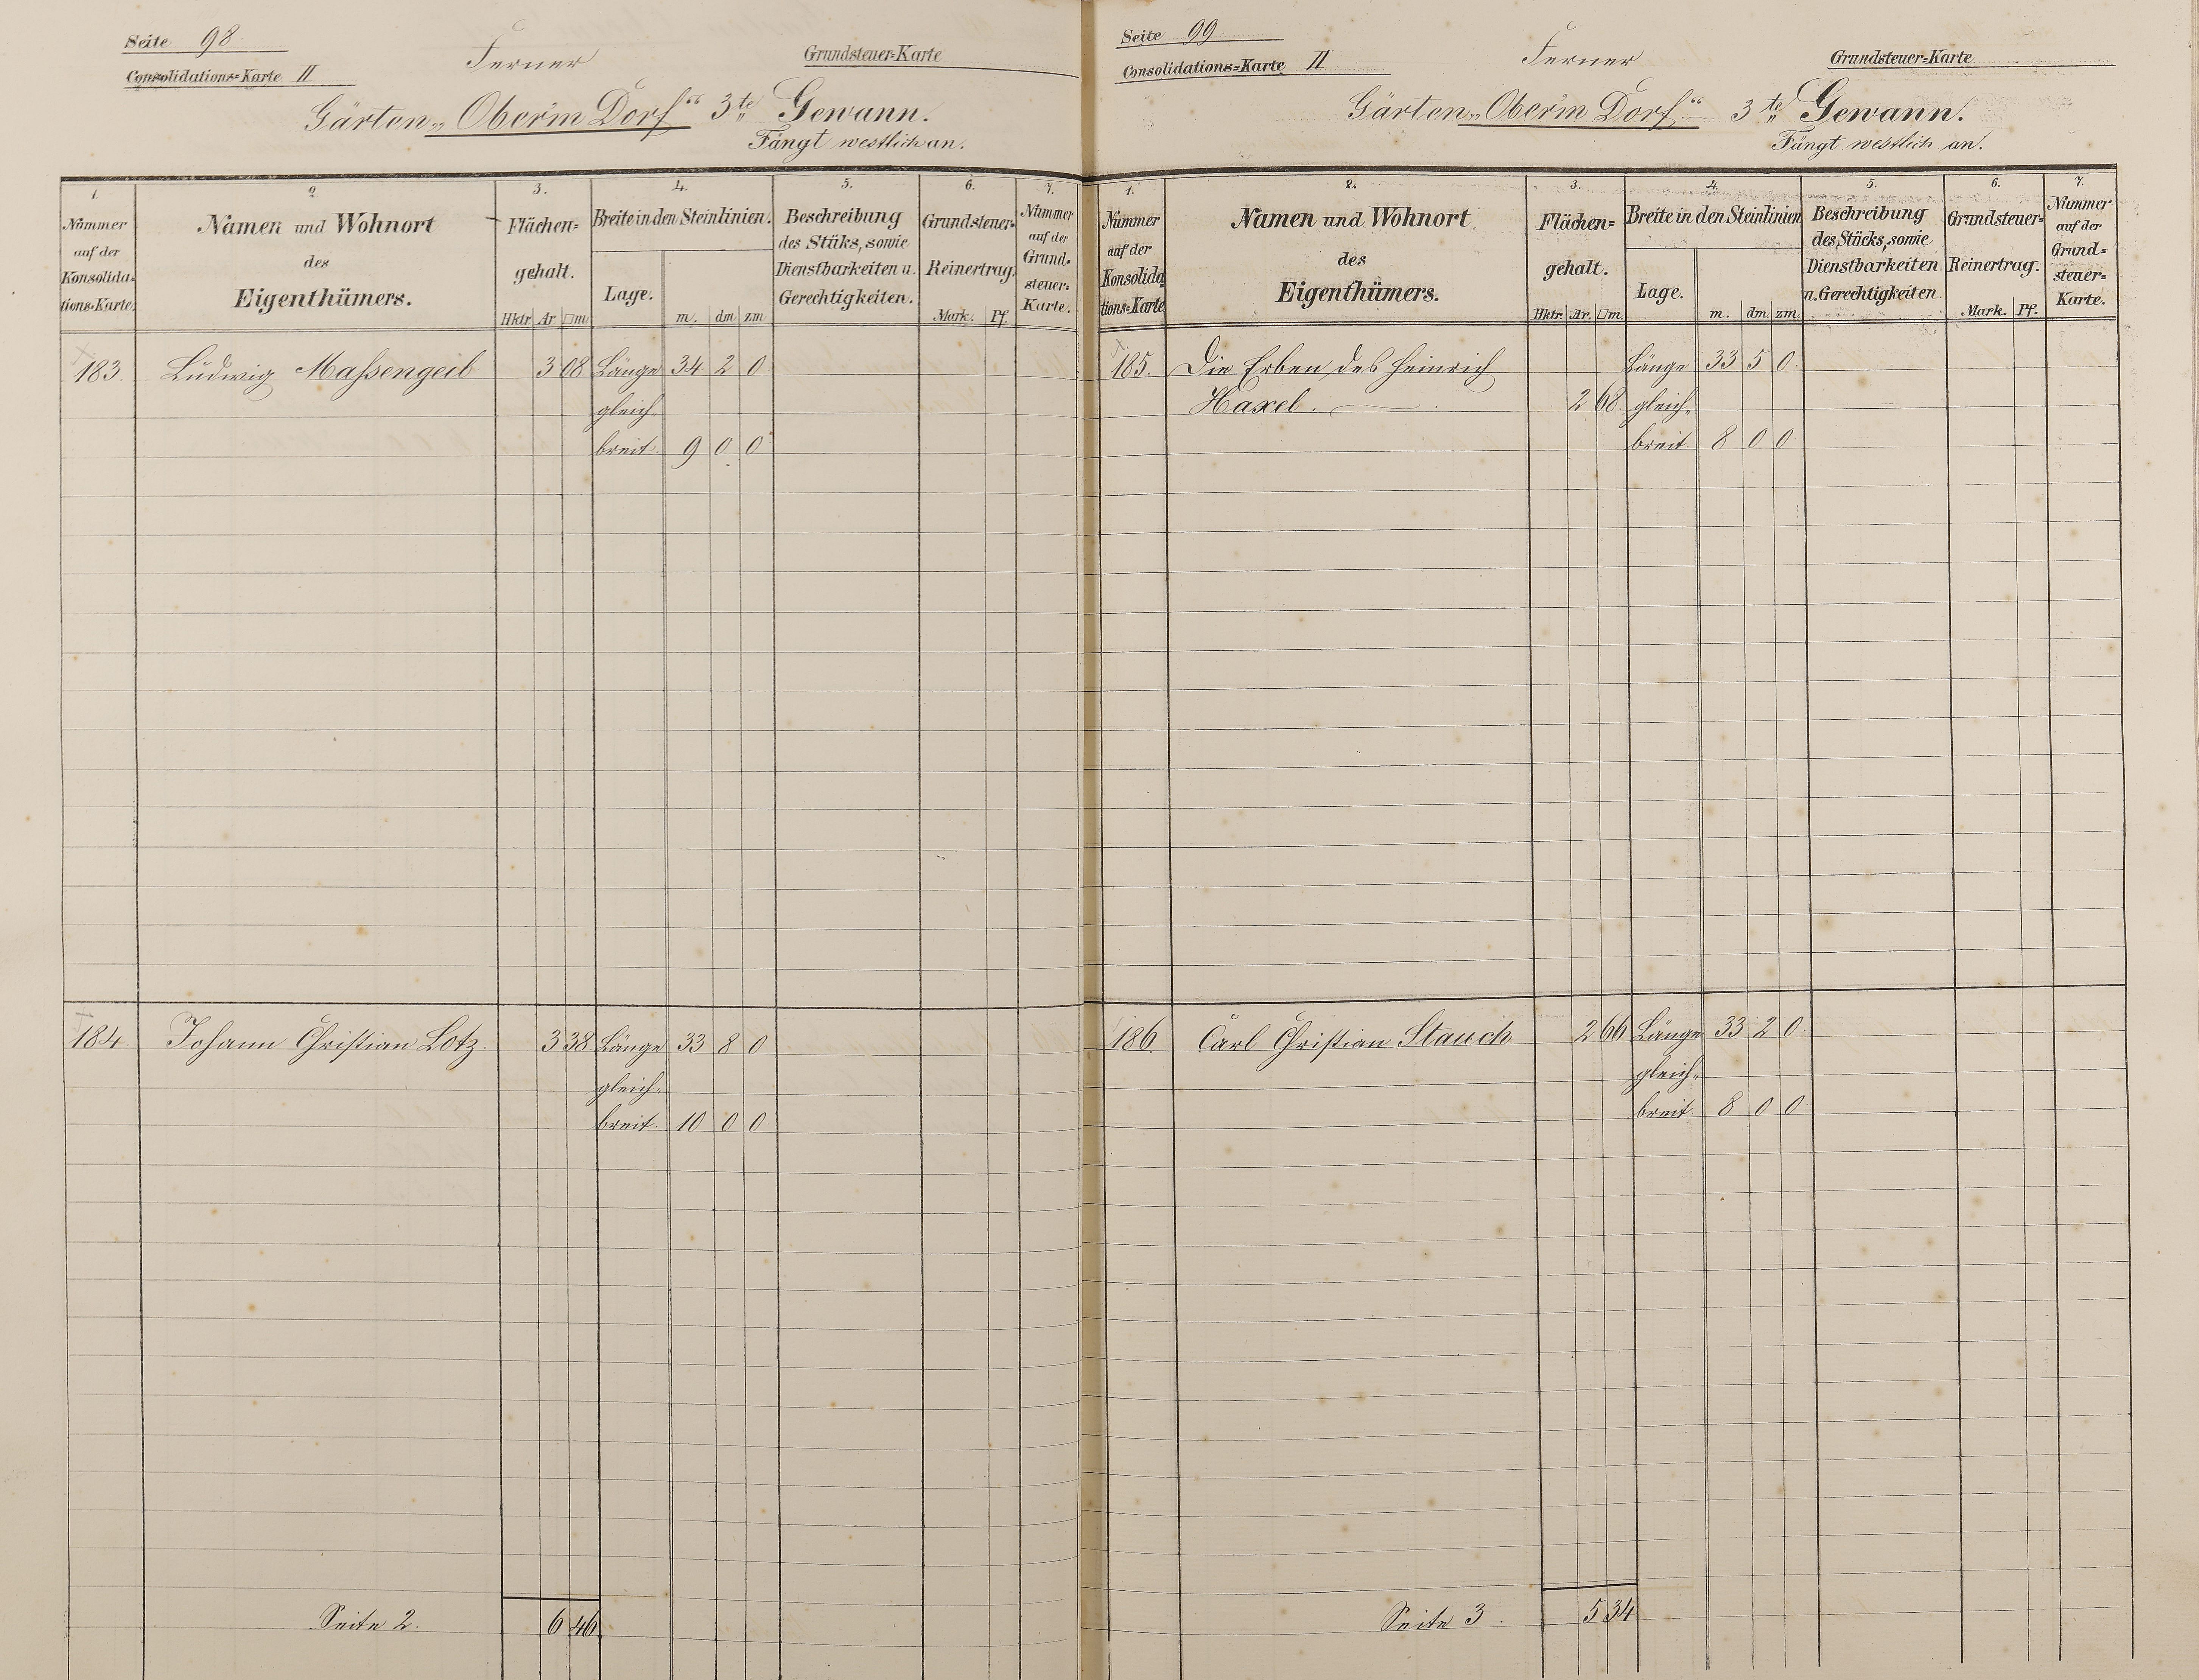 Seite 98
Consolidations=Karte II
Ferner
Grundsteuer=Karte
Gärten „Ober'm Dorf“ 3te Gewann.
Fängt westlich an.
1. 2. 3. 4. 5. 6. 7.
Nummer auf der Konsolida=tions=Karte.
Namen und Wohnort
des
Eigenthümers.
Flächen=
gehalt.
Hktr Ar □m
Breite in den Steinlinien.
Lage.
m. dm zm
Beschreibung
des Stüks, sowie
Dienstbarkeiten u.
Gerechtigkeiten.
Grundsteuer=
Reinertrag.
Mark. Pf.
Nummer
auf der
Grund=
steuer=
Karte.
183. Ludwig Maßengeil 3 08 Länge 34 2 0
gleich=
breit. 9 0 0
184. Johann Christian Lotz. 3 38 Länge 33 8 0
gleich=
breit. 10 0 0
Seite 2. 6 46
Seite 99.
Consolidations=Karte II
Ferner
Grundsteuer=Karte
Gärten „Ober'm Dorf“ 3te Gewann.
Fängt westlich an.
1. 2. 3. 4. 5. 6. 7.
Nummer
auf der
Konsolida
tions=Karte
Namen und Wohnort
des
Eigenthümers.
Flächen=
gehalt.
Hktr. Ar. □m.
Breite in den Steinlinien
Lage.
m. dm zm
Beschreibung
des Stücks, sowie
Dienstbarkeiten
u. Gerechtigkeiten.
Grundsteuer=
Reinertrag.
Mark. Pf.
Nummer
auf der
Grund=
steuer=
Karte.
185. Die Erben des Heinrich Länge 33 5 0
Haxel. 2 68 gleich=
breit. 8 0 0
186. Carl Christian Stauch 2 66 Länge 33 2 0
gleich=
breit. 8 0 0
Seite 3. 5 34